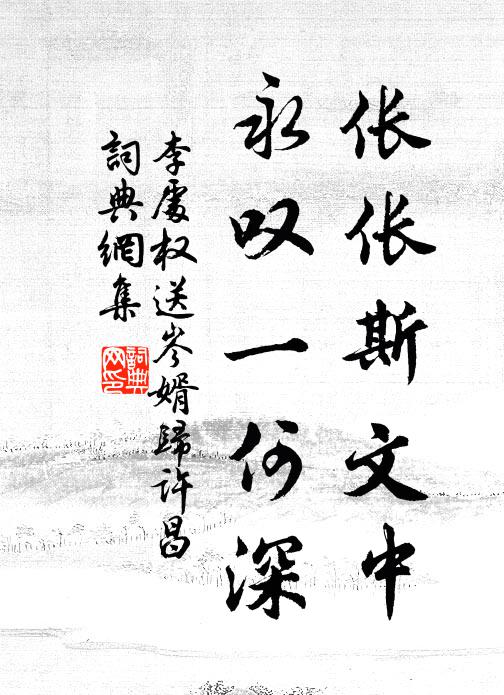 伥伥斯文中
永叹一何深
李處权送岑婿歸许昌
詞典網集
詞典网印